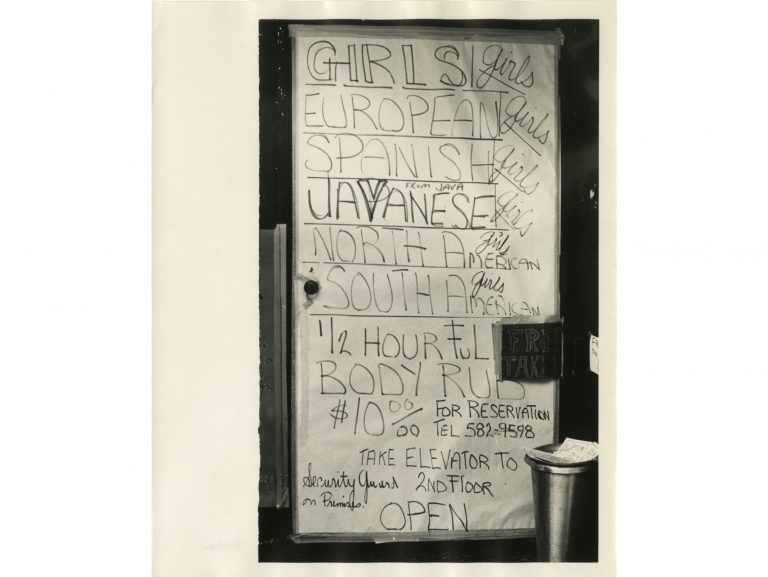 GIRLS girls
EUROPEAN girls
SPANISH girls
FROM JAVA
JAVANESE girls
NORTH AMERICAN girls
SOUTH AMERICAN girls
1/2 HOUR FUL
BODY RUB
$10 00/00 FOR RESERVATION
TEL 582-9598
TAKE ELEVATOR TO
2ND FLOOR
Security Guard
on Premises.
OPEN
FRE
TAKE